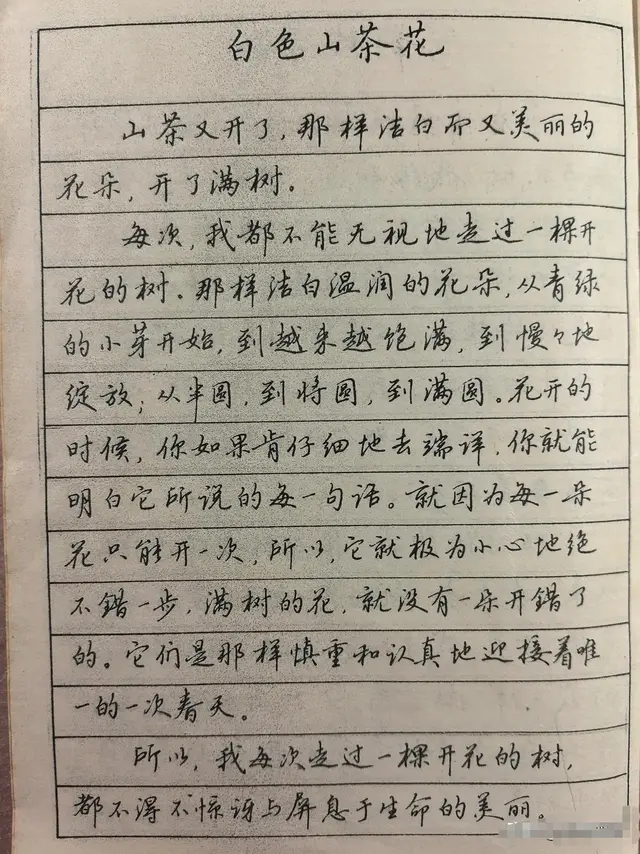 白色山茶花
山茶又开了，那样洁白而又美丽的
花朵，开了满树。
每次，我都不能无视地走过一棵开
花的树。那样洁白温润的花朵，从青绿
的小芽开始，到越来越饱满，到慢々地
绽放；从半圆，到将圆，到满圆。花开的
时候，你如果肯仔细地去端详，你就能
明白它所说的每一句话。就因为每一朵
花只能开一次，所以，它就极为小心地绝
不错一步，满树的花，就没有一朵开错了
的。它们是那样慎重和认真地迎接着唯
一的一次春天。
所以，我每次走过一棵开花的树，
都不得不惊讶与屏息于生命的美丽。